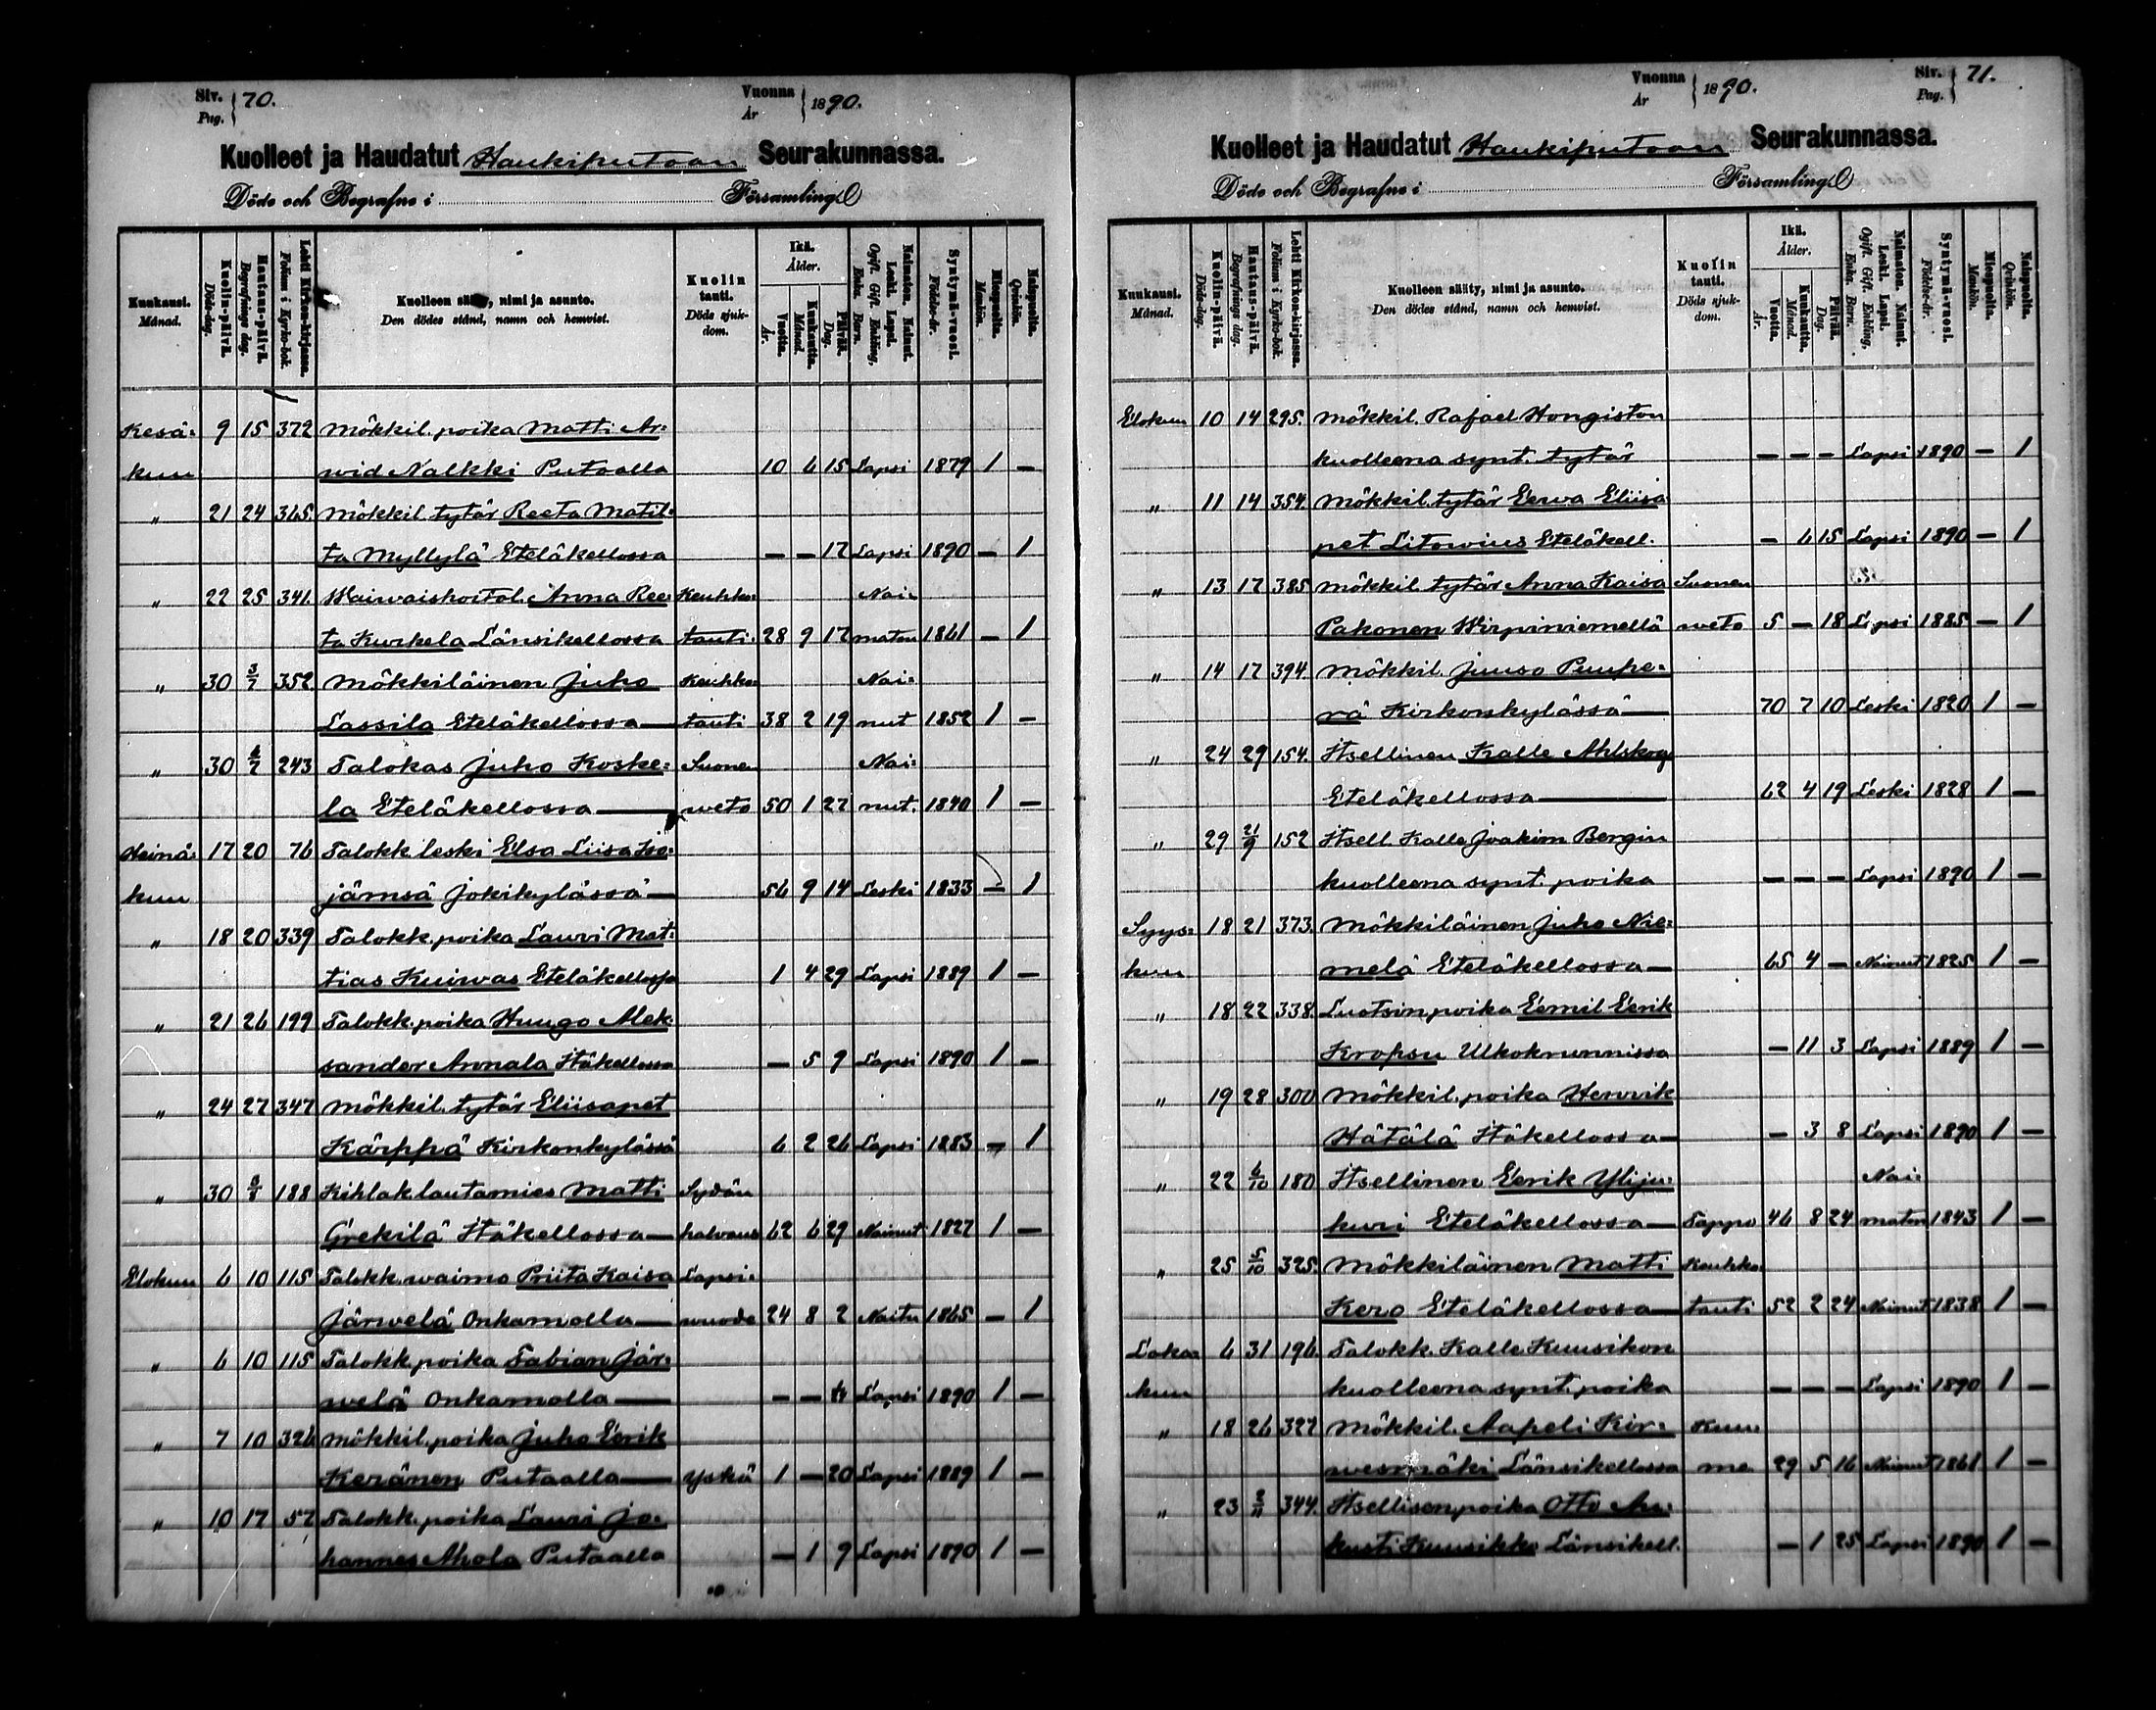 Siv. Pag. 70.
Vuonna År 1890.
Kuolleet ja Haudatut Haukiputaan Seurakunnassa.
Döde och Begrafne i Församling
Kuukausi. Månad.
Kuolin-päivä. Döds-dag.
Hautaus-päivä. Begrafnings dag.
Lehti Kirkon-kirjassa. Folium i Kyrko-bok.
Kuolleen sääty, nimi ja asunto. Den dödes stånd, namn och hemvist.
Kuolin tauti. Döds sjuk-dom.
Ikä. Ålder.
Vuotta. År.
Kuukautta. Månad.
Päivää. Dag.
Naimaton. Nainut. Leski. Lapsi. Ogift. Gift. Enkling, Enka. Barn.
Syntymä-vuosi. Födelse-år.
Miespuolta. Mankön.
Naispuolta. Qvinkön.
Kesä= 9 15 372 Mökkil. poika Matti Ar=
kuu wid Nalkki Putaalla 10 6 15 Lapsi 1879 1 —
" 21 24 365. Mökkil. tytär Reeta Matil=
ta Myllylä Eteläkellossa — — 17 Lapsi 1890 — 1
" 22 25 341. Waiwaishoitol. Anna Ree= Keuhko= Nai=
ta Kurkela Länsikellossa tauti. 28 9 17 maton 1861 — 1
" 30 3/7 352. Mökkiläinen Juho Keuhko= Nai=
Lassila Eteläkellossa — tauti 38 2 19 nut 1852 1 —
" 30 6/7 243 Talokas Juho Koske= Suonen Nai=
la Eteläkellossa — weto 50 1 27 nut. 1840 1 —
Heinä= 17 20 76 Talokk. leski Elsa Liisa Iso=
kuu jämsä Jokikylässä — 56 9 14 Leski 1833 — 1
" 18 20 339 Talokk. poika Lauri Mat=
tias Kuiwas Eteläkellossa 1 4 29 Lapsi 1889 1 —
" 21 26 199 Talokk. poika Huugo Alek=
sander Annala Itäkellossa — 5 9 Lapsi 1890 1 —
" 24 27 347 Mökkil. tytär Eliisapet
Kärppä Kirkonkylässä 6 2 26 Lapsi 1883 — 1
" 30 3/8 188 Kihlak. lautamies Matti Sydän
Grekilä Itäkellossa — halvaus 62 6 29 Nainut 1827 1 —
Elokuu 6 10 115 Talokk. waimo Priita Kaisa Lapsi=
Järwelä Onkamolla — wuode 24 8 2 Naitu 1865 — 1
" 6 10 115 Talokk. poika Fabian Jär=
welä Onkamolla — — — Lapsi 1890 1 —
" 7 10 326 Mökkil. poika Juho Eerik
Keränen Putaalla — yskä 1 — 20 Lapsi 1889 1 —
" 10 17 57 Talokk. poika Lauri Jo=
hannes Ahola Putaalla — 1 9 Lapsi 1890 1 —
Vuonna År 1890.
Siv. Pag. 71.
Kuolleet ja Haudatut Haukiputaan Seurakunnassa.
Döde och Begrafne i Församling
Kuukausi. Månad.
Kuolin-päivä. Döds-dag.
Hautaus-päivä. Begrafnings dag.
Lehti Kirkon-kirjassa. Folium i Kyrko-bok.
Kuolleen sääty, nimi ja asunto. Den dödes stånd, namn och hemvist.
Kuolin tauti. Döds sjuk-dom.
Ikä. Ålder.
Vuotta. År.
Kuukautta. Månad.
Päivää. Dag.
Naimaton. Nainut. Leski. Lapsi. Ogift. Gift. Enkling, Enka. Barn.
Syntymä-vuosi. Födelse-år.
Miespuolta. Mankön.
Naispuolta. Qvinkön.
Elokuu 10 14 295. Mökkil. Rafael Hongiston
kuolleena synt. tytär — — — Lapsi 1890 — 1
" 11 14 354. Mökkil. tytär Eewa Eliisa
pet Litowius Eteläkell. — 6 15 Lapsi 1890 — 1
" 13 17 385 Mökkil. tytär Anna Kaisa Suonen
Pakonen Wirpiniemellä weto 5 — 18 Lapsi 1885 — 1
" 14 17 394. Mökkil. Juuso Puupe=
rä Kirkonkylässä — 70 7 10 Leski 1820 1 —
" 24 29 154. Itsellinen Kalle Ahlskog
Eteläkellossa — 62 4 19 Leski 1828 1 —
" 29 21/9 152 Itsell. Kalle Joakim Bergin
kuolleena synt. poika — — — Lapsi 1890 1 —
Syys= 18 21 373. Mökkiläinen Juho Nie=
kuu melä Eteläkellossa — 65 4 — Nainut 1825 1 —
" 18 22 338. Luotsin poika Eemil Eerik
Kropsu Ulkokrunnissa — 11 3 Lapsi 1889 1 —
" 19 28 300 Mökkil. poika Henrik
Hätälä Itäkellossa — — 3 8 Lapsi 1890 1 —
" 22 6/10 180 Itsellinen Eerik Yliju= Nai=
kuri Eteläkellossa — Tappo 46 8 24 maton 1843 1 —
" 25 5/10 325. Mökkiläinen Matti Keuhko=
Kero Eteläkellossa — tauti 52 2 24 Nainut 1838 1 —
Loka= 6 31 196. Talokk. Kalle Kuusikon
kuu kuolleena synt. poika — — — Lapsi 1890 1 —
" 18 26 327 Mökkil. Aapeli Kir= Kuu=
wesmäki Länsikellossa me 29 5 16 Nainut 1861 1 —
" 23 2/11 344. Itsellisen poika Otto Au=
kusti Kuusikko Länsikell. — 1 25 Lapsi 1890 1 —